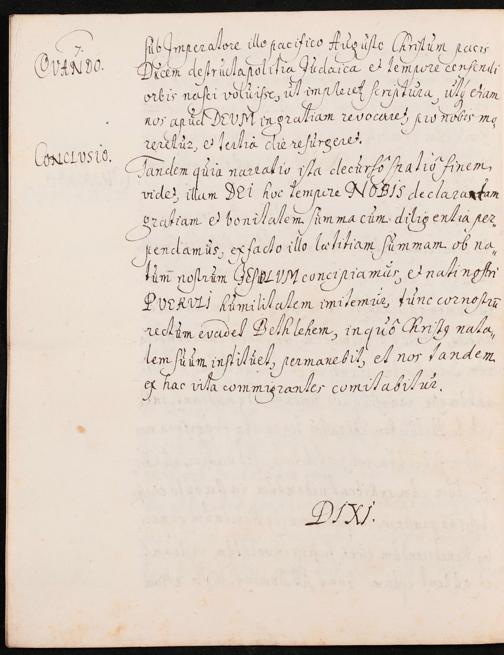 7.
QVANDO.
sub Imperatore illo pacifico Augusto Christum pacis
Ducem destructa politia Judaica et tempore censendi
orbis nasci voluisse, ut impleret scriptura, utq; etiam
nos apud DEVM in gratiam revocaret, pro nobis mo
reretur, et tertia die resurgeret.
CONCLVSIO.
Tandem quia narratio ista decurso spatio finem
videt, illam DEI hoc tempore NOBIS declaratam
gratiam et bonitatem summa cum diligentia per-
pendamus, ex facto illo lætitiam summam ob na-
tum nostrum JESVLVM concipiamus, et nati nostri
PVERVLI humilitatem imitemur, tunc cor nostrū
rectum evadet Bethlehem, in quo Christq nata-
lem suum instituet, permanebit, et nos tandem
ex hac vita commigrantes comitabitur.
DIXI.